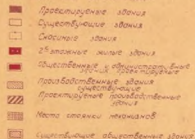 Проектируемые здания
Существующие здания
Сносимые здания
2х этажные жилые здания
Общественные и
здания проектируемые
Производственные здания
существующие
Проектируемые производственные
здания
Места стоянки механизмов
Существующие общественные здания